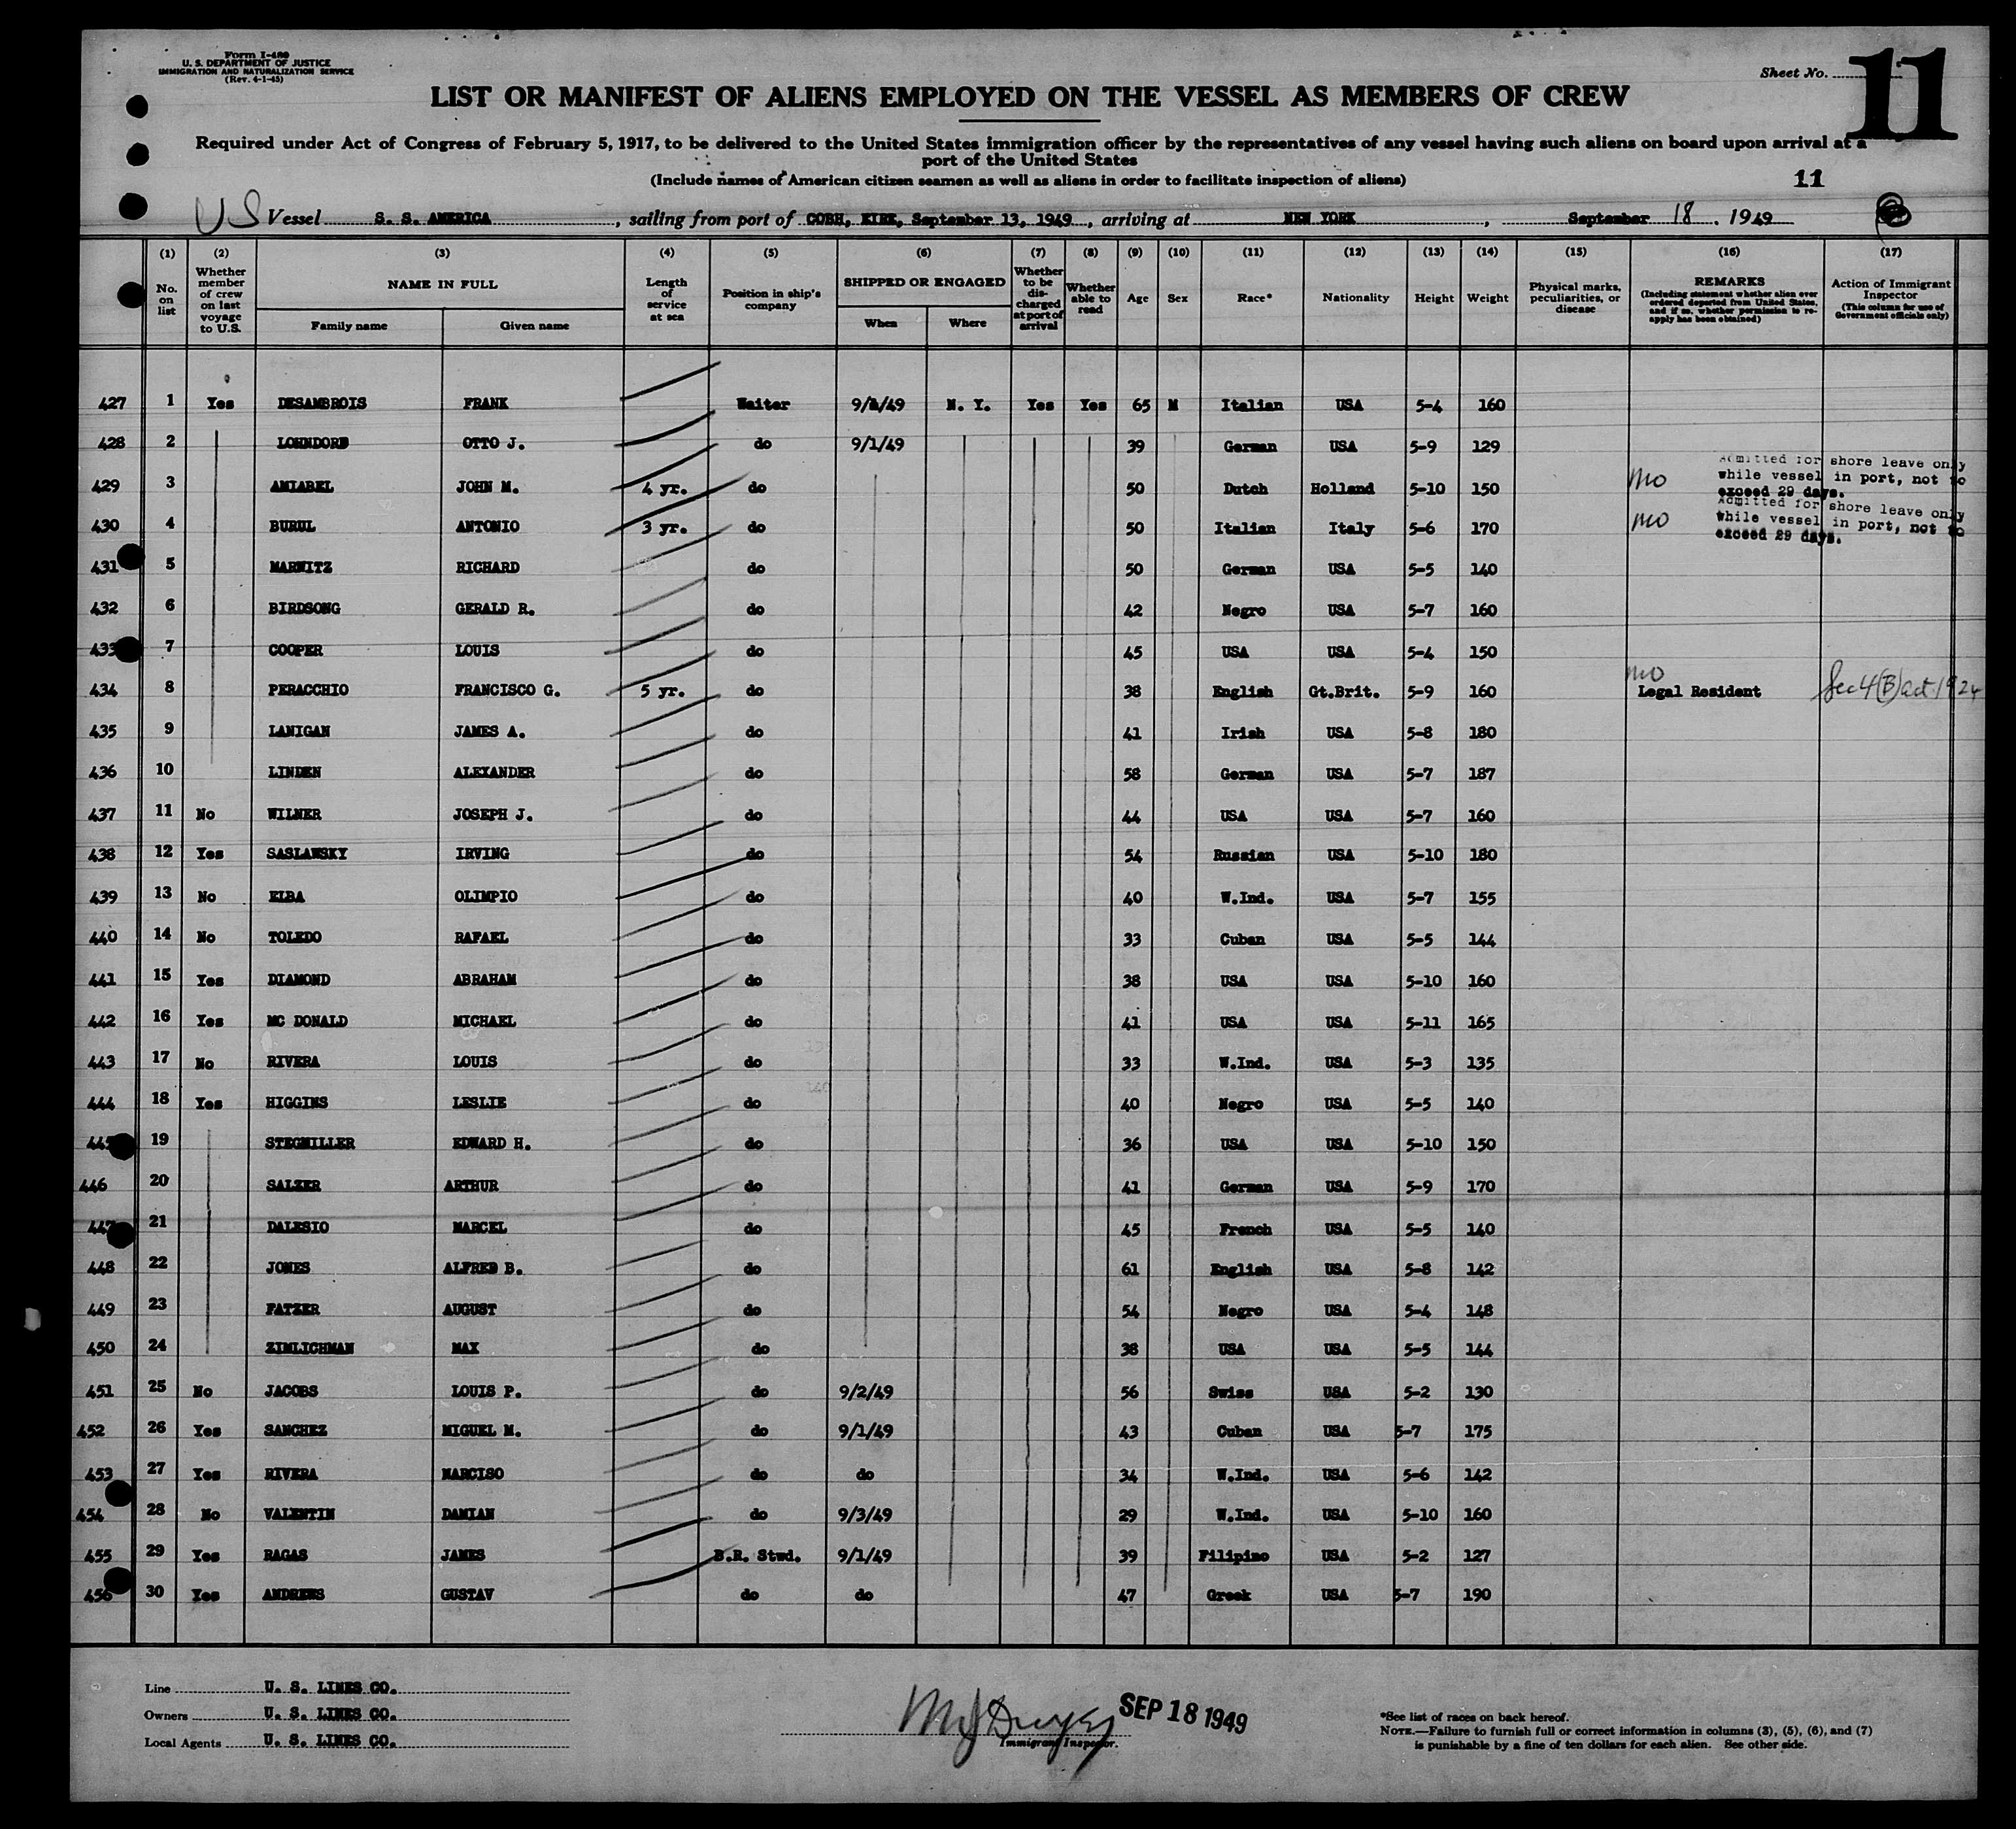 Form I-480
U. S. DEPARTMENT OF JUSTICE
IMMIGRATION AND NATURALIZATION SERVICE
(Rev. 4-1-45)
Sheet No. 11
LIST OR MANIFEST OF ALIENS EMPLOYED ON THE VESSEL AS MEMBERS OF CREW
Required under Act of Congress of February 5, 1917, to be delivered to the United States immigration officer by the representatives of any vessel having such aliens on board upon arrival at a
port of the United States
(Include names of American citizen seamen as well as aliens in order to facilitate inspection of aliens)
11
US Vessel S. S. AMERICA, sailing from port of COBH, EIRE, September 13, 1949, arriving at NEW YORK, September 18, 1949
(1) (2) (3) (4) (5) (6) (7) (8) (9) (10) (11) (12) (13) (14) (15) (16) (17)
No. on list
Whether member of crew on last voyage to U.S.
NAME IN FULL
Family name Given name
Length of service at sea
Position in ship's company
SHIPPED OR ENGAGED
When Where
Whether to be discharged at port of arrival
Whether able to read
Age Sex Race* Nationality Height Weight
Physical marks, peculiarities, or disease
REMARKS
(Including statement whether alien ever ordered deported from United States, and if so, whether permission to reapply has been obtained)
Action of Immigrant Inspector
(This column for use of Government officials only)
427 1 Yes DESAMBROIS FRANK Waiter 9/1/49 N. Y. Yes Yes 65 M Italian USA 5-4 160
428 2 LOHNDORB OTTO J. do 9/1/49 39 German USA 5-9 129
429 3 AMIABEL JOHN M. 4 yr. do 50 Dutch Holland 5-10 150 mo Admitted for shore leave only while vessel in port, not to exceed 29 days.
430 4 BURUL ANTONIO 3 yr. do 50 Italian Italy 5-6 170 mo Admitted for shore leave only while vessel in port, not to exceed 29 days.
431 5 MARWITZ RICHARD do 50 German USA 5-5 140
432 6 BIRDSONG GERALD R. do 42 Negro USA 5-7 160
433 7 COOPER LOUIS do 45 USA USA 5-4 150
434 8 PERACCHIO FRANCISCO G. 5 yr. do 38 English Gt.Brit. 5-9 160 mo Legal Resident Sec 4(B) act 1924
435 9 LANIGAN JAMES A. do 41 Irish USA 5-8 180
436 10 LINDEN ALEXANDER do 58 German USA 5-7 187
437 11 No WILNER JOSEPH J. do 44 USA USA 5-7 160
438 12 Yes SASLAWSKY IRVING do 54 Russian USA 5-10 180
439 13 No ELBA OLIMPIO do 40 W.Ind. USA 5-7 155
440 14 No TOLEDO RAFAEL do 33 Cuban USA 5-5 144
441 15 Yes DIAMOND ABRAHAM do 38 USA USA 5-10 160
442 16 Yes MC DONALD MICHAEL do 41 USA USA 5-11 165
443 17 No RIVERA LOUIS do 33 W.Ind. USA 5-3 135
444 18 Yes HIGGINS LESLIE do 40 Negro USA 5-5 140
445 19 STEGMILLER EDWARD H. do 36 USA USA 5-10 150
446 20 SALZER ARTHUR do 41 German USA 5-9 170
447 21 DALESIO MARCEL do 45 French USA 5-5 140
448 22 JONES ALFRED B. do 61 English USA 5-8 142
449 23 FATZER AUGUST do 54 Negro USA 5-4 148
450 24 ZIMLICHMAN MAX do 38 USA USA 5-5 144
451 25 No JACOBS LOUIS P. do 9/2/49 56 Swiss USA 5-2 130
452 26 Yes SANCHEZ MIGUEL M. do 9/1/49 43 Cuban USA 5-7 175
453 27 Yes RIVERA NARCISO do do 34 W.Ind. USA 5-6 142
454 28 No VALENTIN DAMIAN do 9/3/49 29 W.Ind. USA 5-10 160
455 29 Yes RAGAS JAMES B.R. Stwd. 9/1/49 39 Filipino USA 5-2 127
456 30 Yes ANDREWS GUSTAV do do 47 Greek USA 5-7 190
Line U. S. LINES CO.
Owners U. S. LINES CO.
Local Agents U. S. LINES CO.
SEP 18 1949
Immigrant Inspector.
*See list of races on back hereof.
NOTE.—Failure to furnish full or correct information in columns (3), (5), (6), and (7)
is punishable by a fine of ten dollars for each alien. See other side.